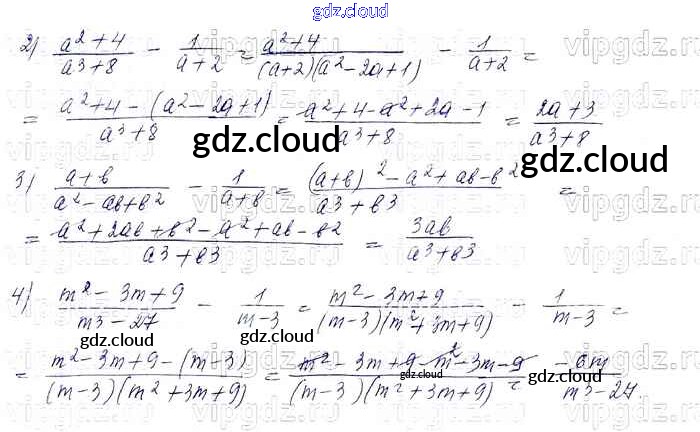 gdz.cloud
2) \frac{a^2+4}{a^3+8} - \frac{1}{a+2} = \frac{a^2+4}{(a+2)(a^2-2a+1)} - \frac{1}{a+2} =
= \frac{a^2+4-(a^2-2a+1)}{a^3+8} = \frac{a^2+4-a^2+2a-1}{a^3+8} = \frac{2a+3}{a^3+8}
gdz.cloud
gdz.cloud
3) \frac{a+b}{a^2-ab+b^2} - \frac{1}{a+b} = \frac{(a+b)^2-a^2+ab-b^2}{a^3+b^3} =
= \frac{a^2+2ab+b^2-a^2+ab-b^2}{a^3+b^3} = \frac{3ab}{a^3+b^3}
4) \frac{m^2-3m+9}{m^3-27} - \frac{1}{m-3} = \frac{m^2-3m+9}{(m-3)(m^2+3m+9)} - \frac{1}{m-3} =
gdz.cloud
gdz.cloud
= \frac{m^2-3m+9-(m-3)}{(m-3)(m^2+3m+9)} = \frac{m^2-3m+9-m^2-3m-9}{(m-3)(m^2+3m+9)} = \frac{-6m}{m^3-27}
gdz.cloud
gdz.cloud
gdz.cloud